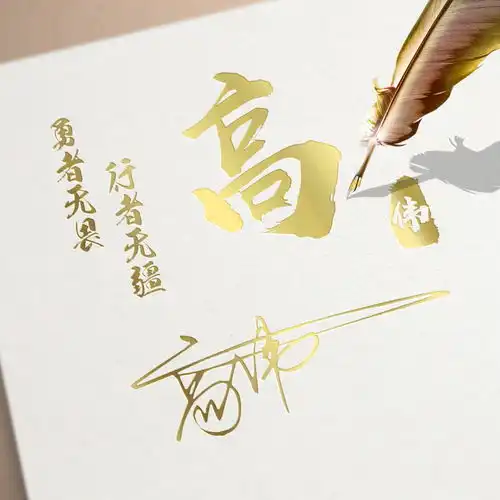 勇者无畏
行者无疆
高
伟
高伟